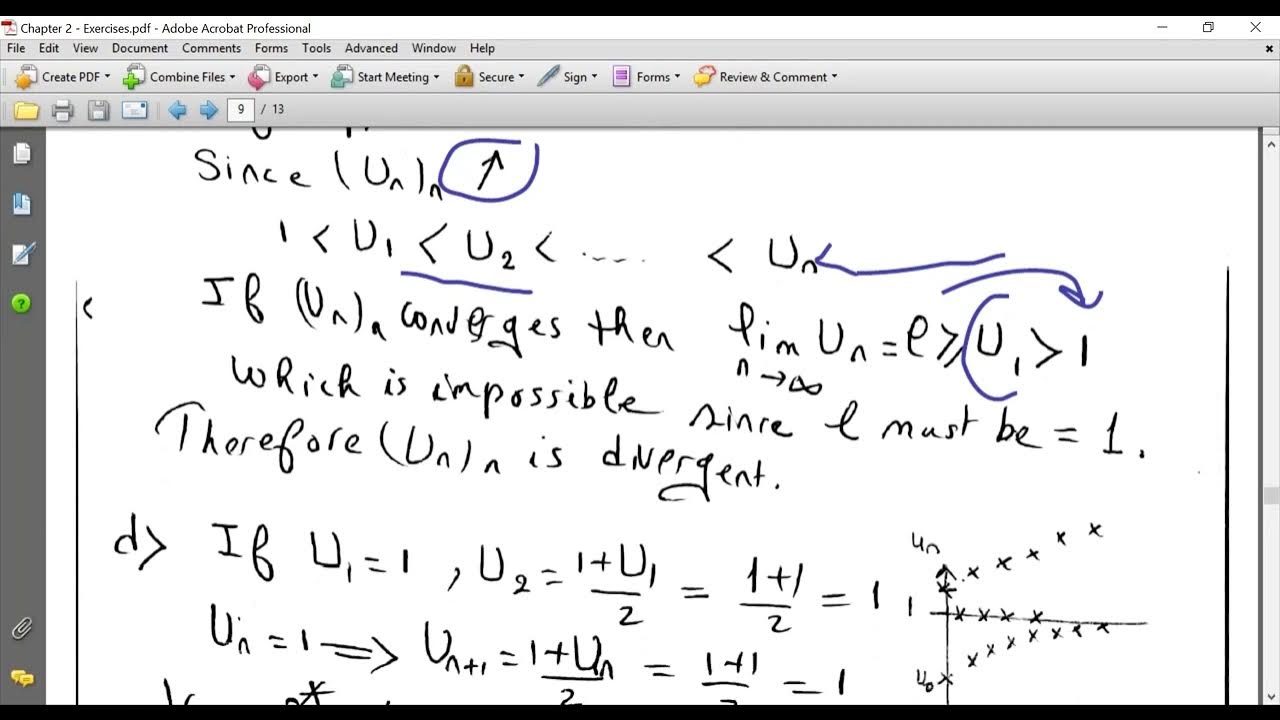 Chapter 2 - Exercises.pdf - Adobe Acrobat Professional
File Edit View Document Comments Forms Tools Advanced Window Help
Create PDF Combine Files Export Start Meeting Secure Sign Forms Review & Comment
9 / 13
Since (Un)n ↑
1 < U1 < U2 < ..... < Un
If (Un)n converges then lim n→∞ Un = ℓ ⩾ U1 > 1
which is impossible since ℓ must be = 1.
Therefore (Un)n is divergent.
d> If U1 = 1 , U2 = (1+U1)/2 = (1+1)/2 = 1
Un = 1 ⟹ Un+1 = (1+Un)/2 = (1+1)/2 = 1
Un
1
U0